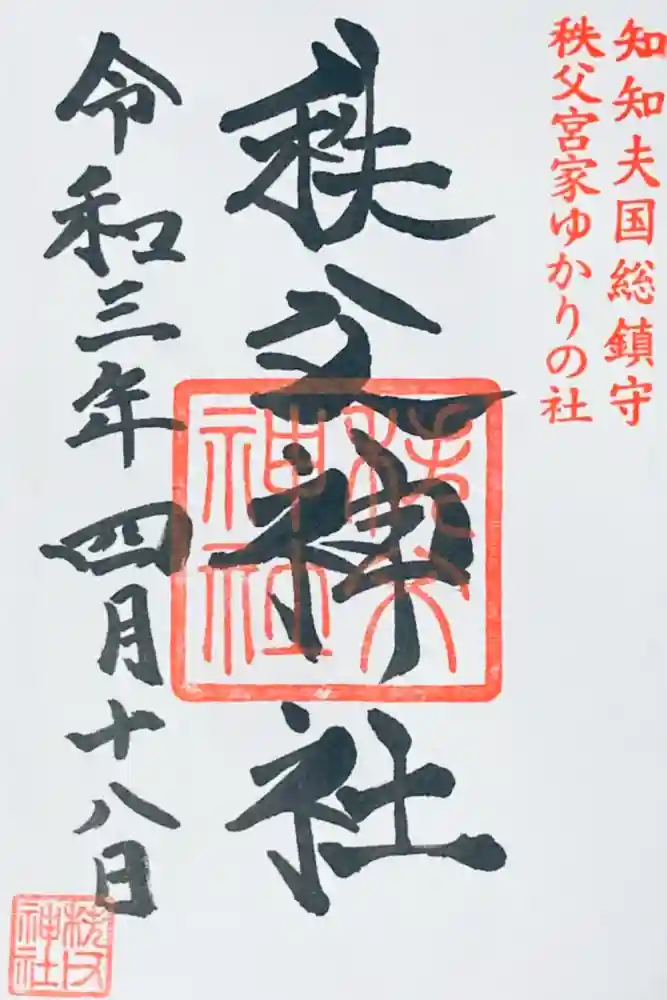 知知夫国総鎮守
秩父宮家ゆかりの社
秩父神社
秩父神社
令和三年四月十八日
秩父神社